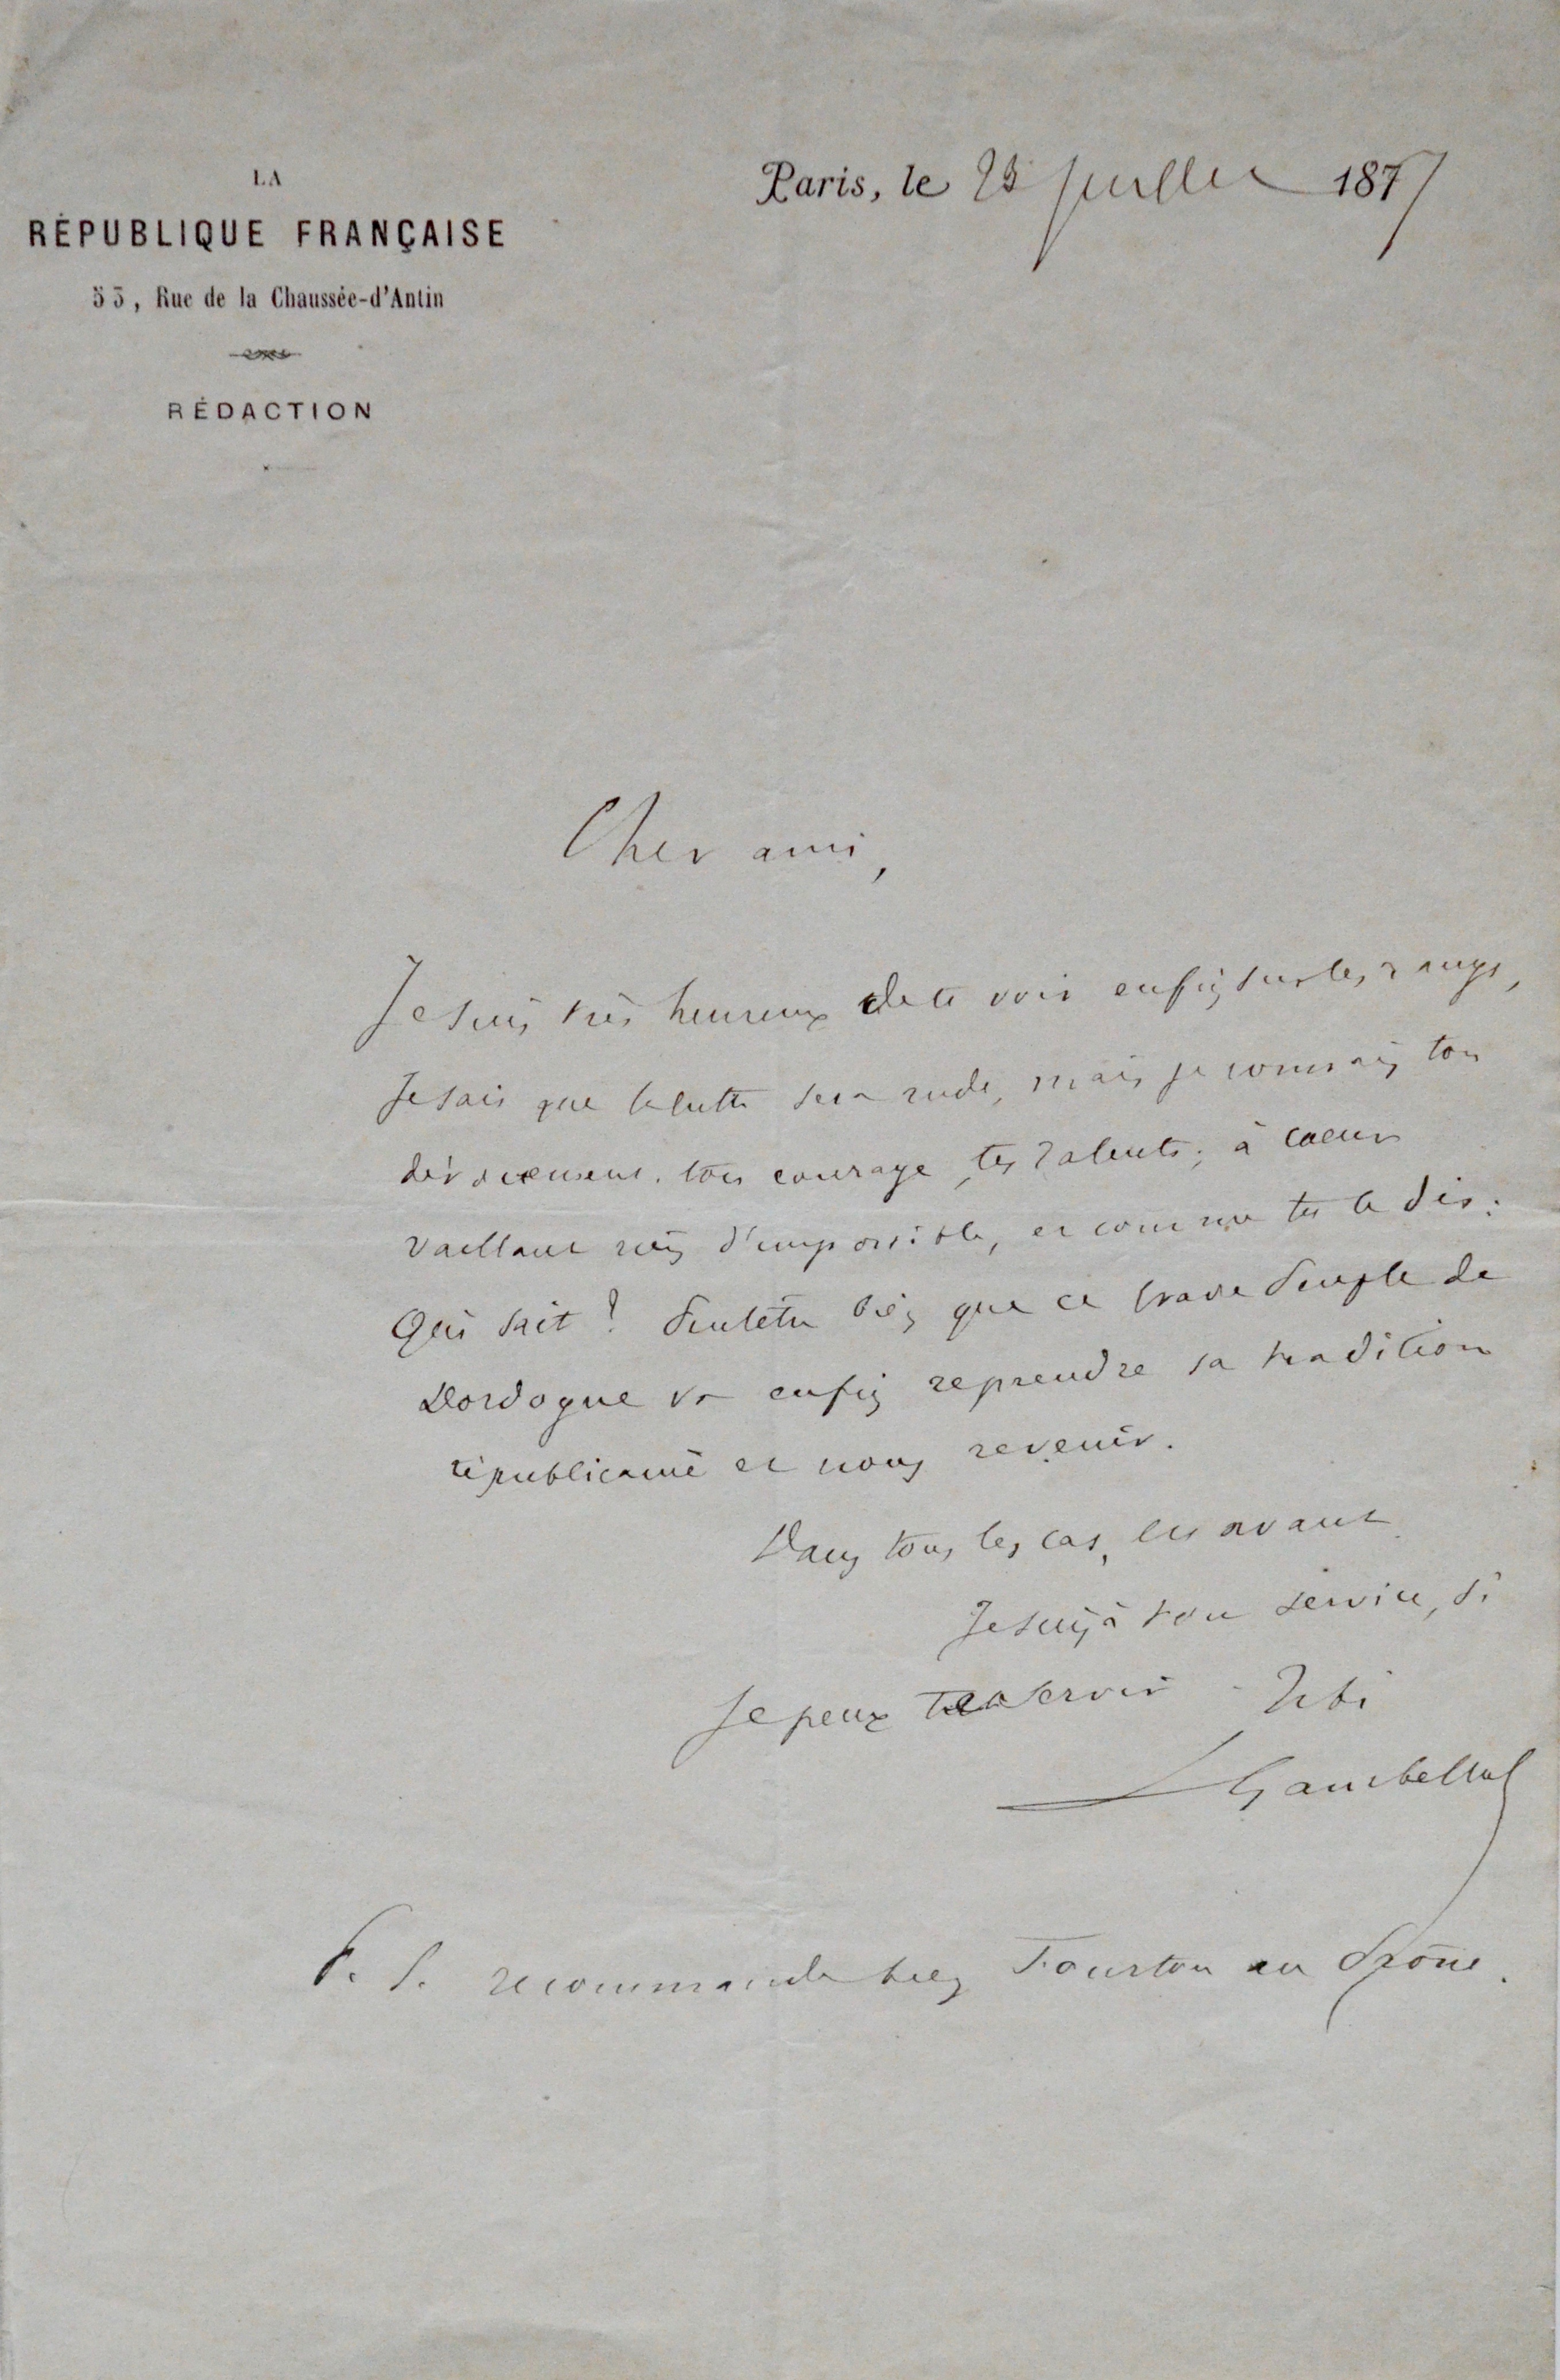 LA
RÉPUBLIQUE FRANÇAISE
53, Rue de la Chaussée-d'Antin
RÉDACTION
Paris, le 23 juillet 1877
Cher ami,
Je suis très heureux de te voir enfin sur les rangs,
Je sais que la lutte sera rude, mais je connais ton
dévouement, ton courage, tes talents; à coeur
vaillant rien d'impossible, et comme tu le dis:
Qui sait? Peut être bien que ce brave Peuple de
Dordogne va enfin reprendre sa tradition
républicaine et nous revenir.
Dans tous les cas, en avant.
Je suis à ton service, si
Je peux te servir - Tibi
L Gambetta
P. S. recommande bien Fourtou au Prône.